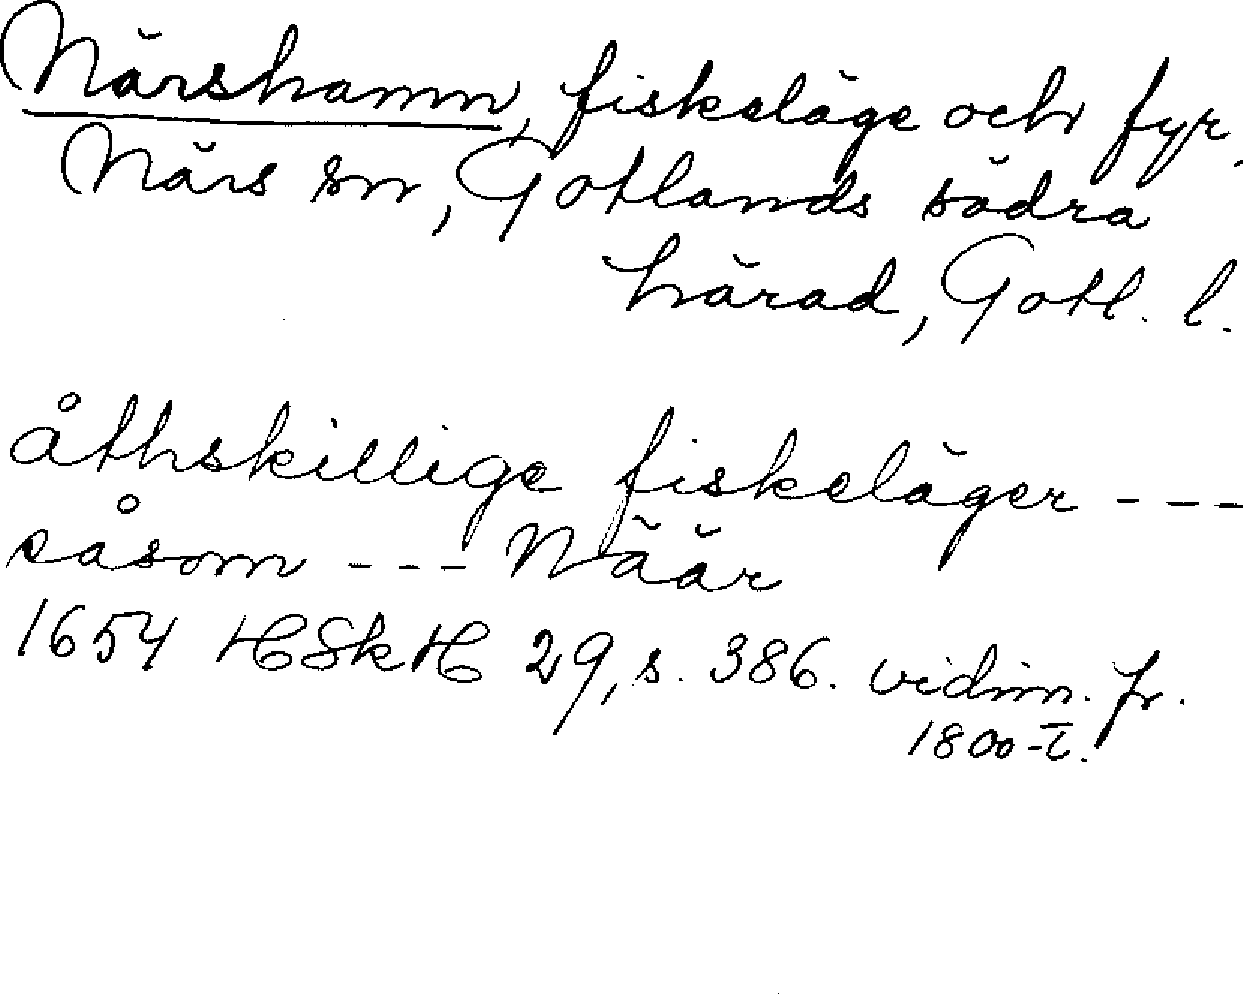 Närshamn, fiskeläge och fyr.
Närs sn, Gotlands södra
härad, Gotl. l.
åthskillige fiskeläger - - -
såsom - - - Näär
1654 HSkH 29, s. 386. vidim. fr.
1800-t.